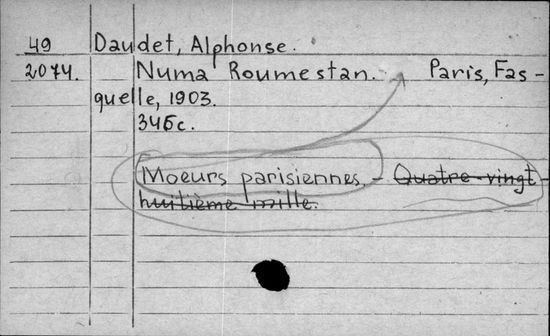 49 Daudet, Alphonse.
2074. Numa Roumestan. Paris, Fas-
quelle, 1903.
346c.
Moeurs parisiennes. - Quatre-vingt-
huitième mille.